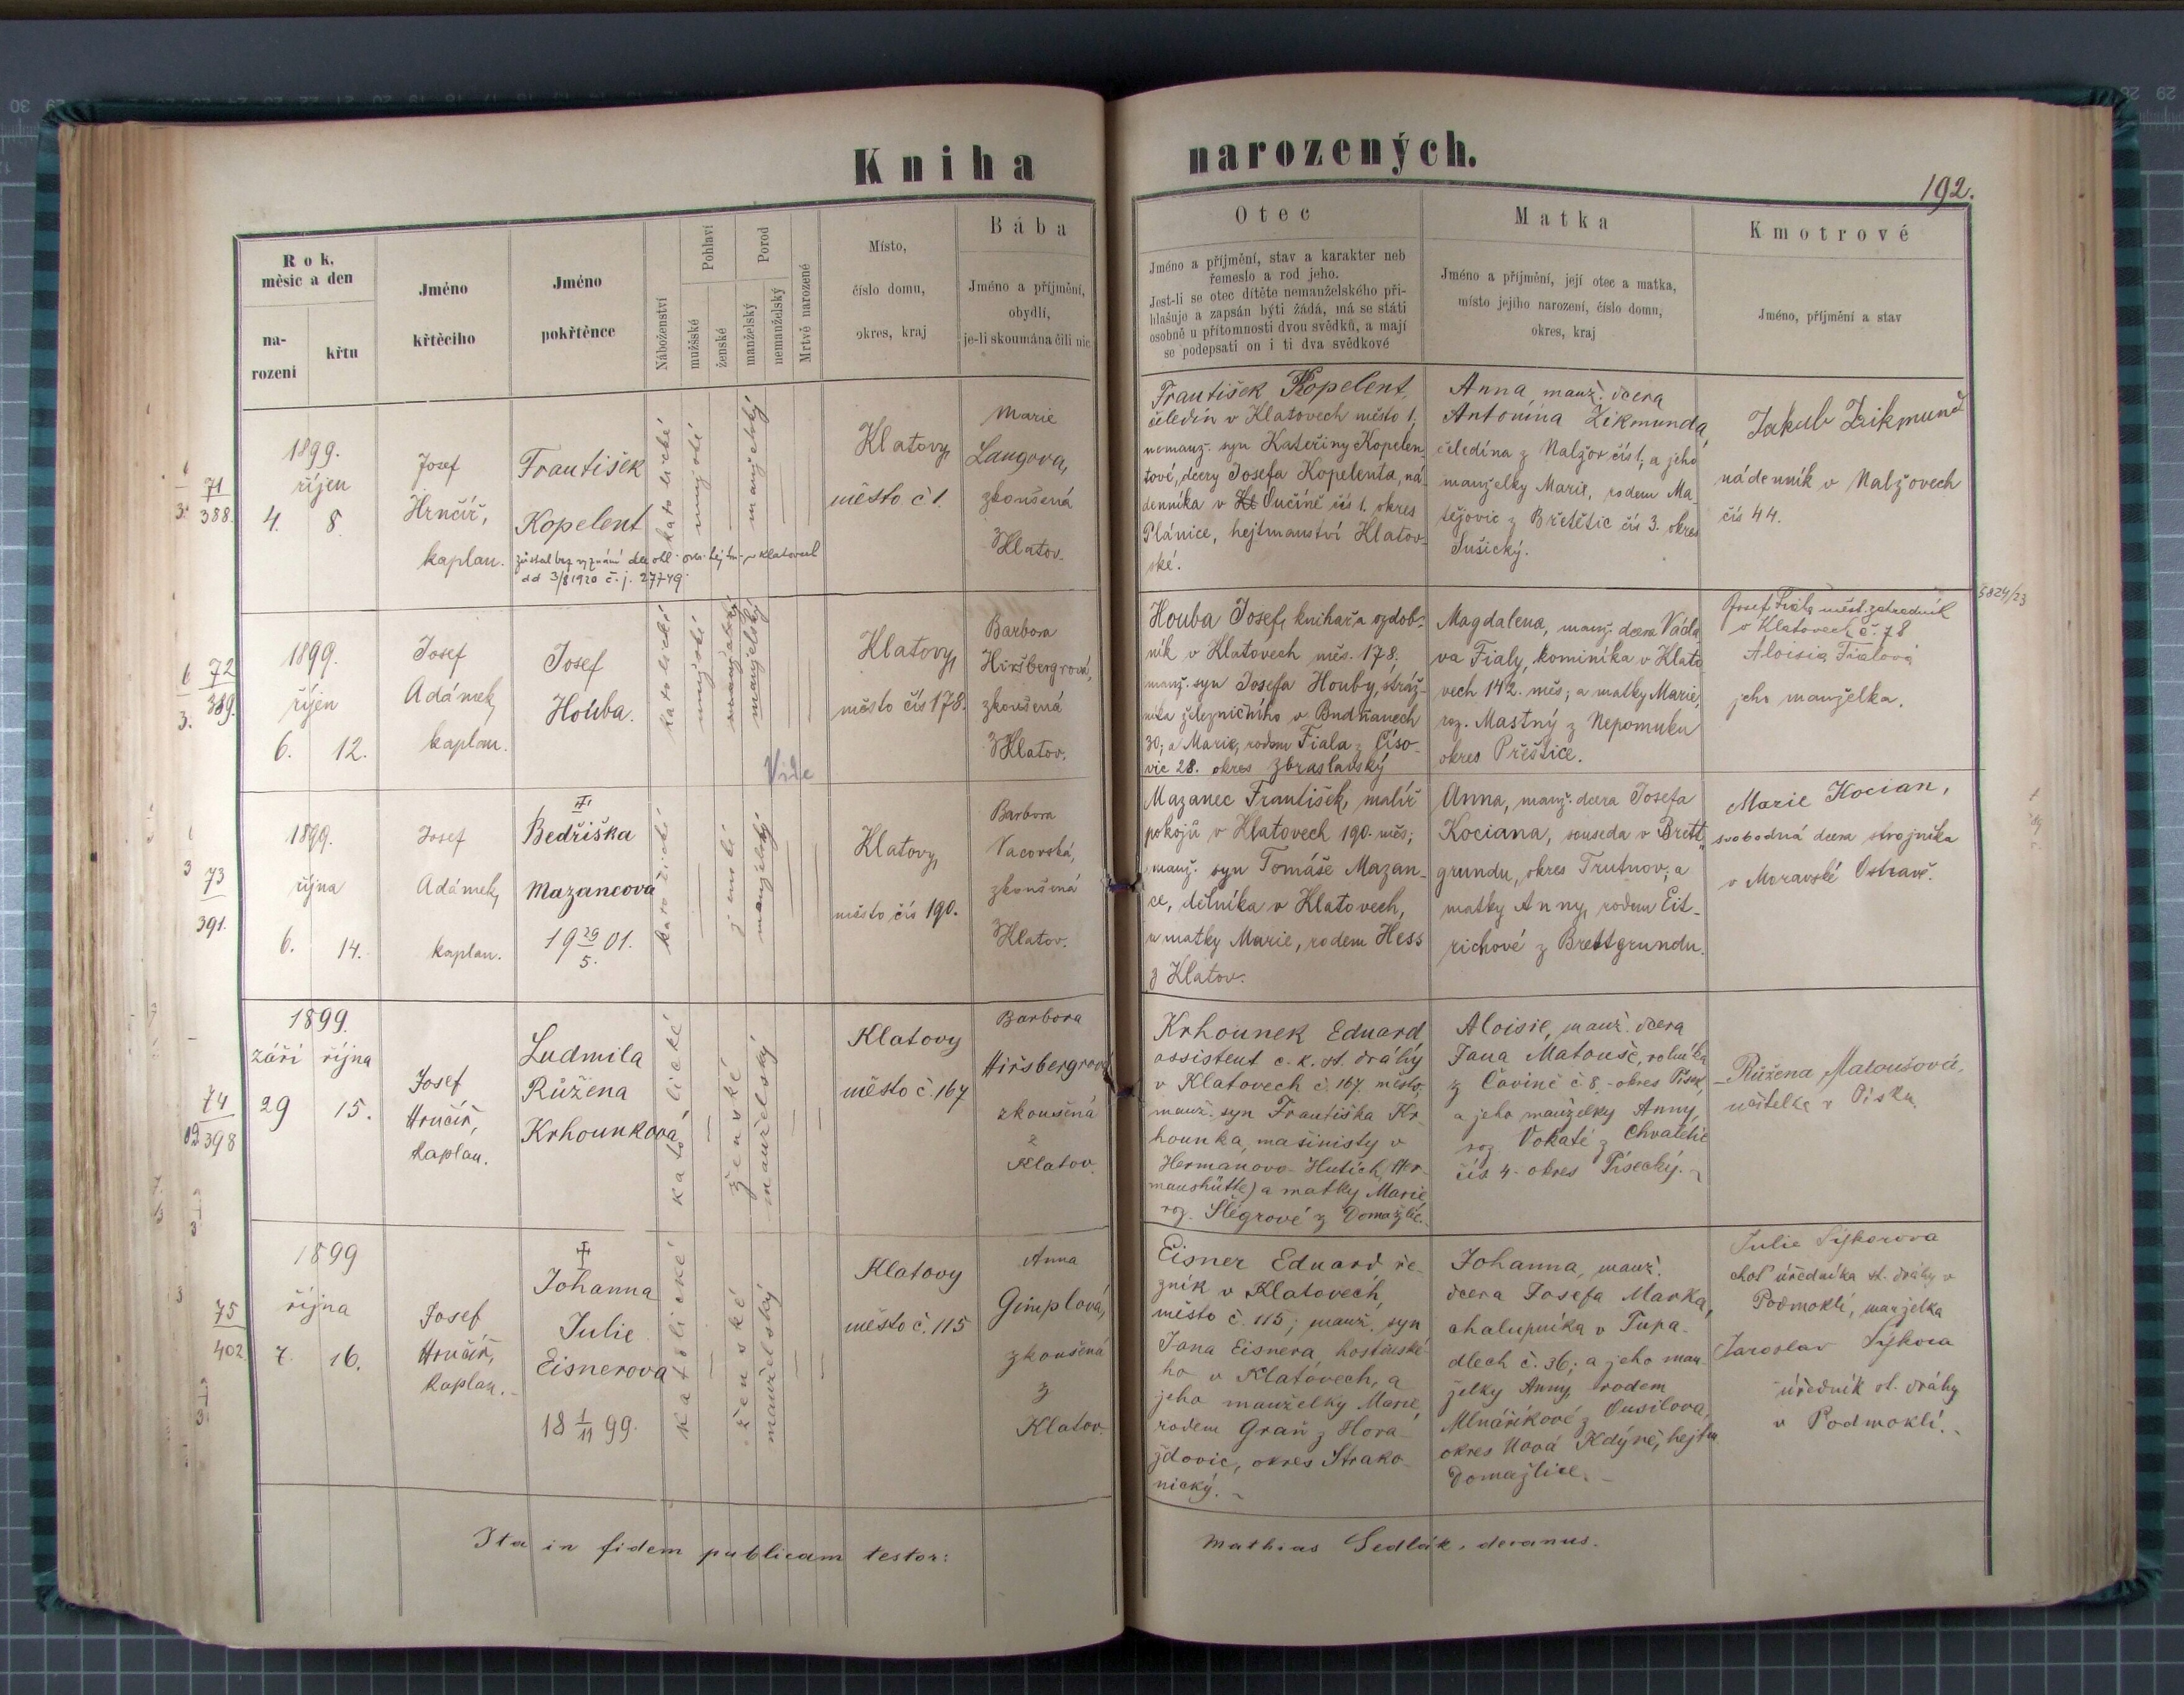 Kniha narozených.
192.
Rok, měsíc a den
na-
rození
křtu
Jméno
křtěcího
Jméno
pokřtěnce
Náboženství
Pohlaví
mužšské
ženské
Porod
manželský
nemanželský
Mrtvě narozené
Místo,
číslo domu,
okres, kraj
Bába
Jméno a příjmění,
obydlí,
je-li skoumána čili nic
Otec
Jméno a příjmění, stav a karakter neb
řemeslo a rod jeho.
Jest-li se otec dítěte nemanželského při-
hlašuje a zapsán býti žádá, má se státi
osobně u přítomnosti dvou svědků, a mají
se podepsati on i ti dva svědkové
Matka
Jméno a příjmění, její otec a matka,
místo jejího narození, číslo domu,
okres, kraj
Kmotrové
Jméno, příjmění a stav
71
388.
1899.
říjen
4. 8.
Josef
Hrnčíř,
kaplan.
František
Kopelent
dd 3/8 1920 č. j. 27749.
katolické
mužské
manželský
Klatovy,
město č 1.
Marie
Langova,
zkoušená
z Klatov.
František Kopelent,
čeledín v Klatovech město 1,
nemanž. syn Kateřiny Kopelen-
tové, dcery Josefa Kopelenta, ná-
denníka v Kt Oučíně čís 1. okres
Plánice, hejtmanství Klatov-
ské.
Anna, manž. dcera
Antonína Zikmunda,
čeledína z Nalžov čís 1, a jeho
manželky Marie, rodem Ma-
tějovic z Břetětic čís 3. okres
Sušický.
Jakub Zikmund
nádenník v Nalžovech
čís 44.
72
389.
1899.
říjen
6. 12.
Josef
Adámek,
kaplan.
Josef
Houba.
katolické
mužské
manželský
manželský
Klatovy,
město čís 178.
Barbora
Hiršbergrová,
zkoušená
z Klatov.
Houba Josef, knihař a ozdob-
ník v Klatovech měs. 178,
manž. syn Josefa Houby, stráž-
níka železničního v Budňanech
30, a Marie, rodem Fiala z Číso-
vic 28. okres Zbraslavský
Magdalena, manž. dcera Václa
va Fialy, kominíka v Klato
vech 142. měs; a matky Marie,
roz. Mastný z Nepomuku
okres Přeštice.
Josef Fiala měst. zahradník
v Klatovech č. 78
Aloisia Fialová
jeho manželka.
5824/23
Vide
73
391.
1899.
října
6. 14.
Josef
Adámek,
kaplan.
Bedřiška
Mazancová
19 29/5. 01.
katolické
ženské
manželský
Klatovy,
město čís 190.
Barbora
Vacovská,
zkoušená
z Klatov.
Mazanec František, malíř
pokojů v Klatovech 190. měs;
manž. syn Tomáše Mazan-
ce, dělníka v Klatovech,
a matky Marie, rodem Hess
z Klatov.
Anna, manž. dcera Josefa
Kociana, souseda v Brett-
grundu, okres Trutnov, a
matky Anny, rodem Eit-
richové z Brettgrundu.
Marie Kocian,
svobodná dcera strojníka
v Moravské Ostravě.
74
398
1899.
září října
29 15.
Josef
Hrnčíř,
kaplan.
Ludmila
Růžena
Krhounkova
katolické
ženské
manželský
Klatovy
město č. 167
Barbora
Hiršbergrová
zkoušená
z
Klatov.
Krhounek Eduard
assistent c. k. st. dráhy
v Klatovech č. 167 město,
manž. syn Františka Kr-
hounka, mašinisty v
Heřmanovo-Hutích, (Her-
manshütte) a matky Marie,
roz. Šlégrové z Domažlic.
Aloisie, manž. dcera
Jana Matouše, rolníka
z Čavině č 8. okres Písek,
a jeho manželky Anny,
roz Vokaté z Chvaletic
čís 4. okres Písecký.
Růžena Matoušová,
učitelka v Písku.
75
402
1899
října
7. 16.
Josef
Hrnčíř,
kaplan.
Johanna
Julie
Eisnerova
18 1/11 99.
katolické
ženské
manželský
Klatovy
město č. 115
Anna
Gimplová,
zkoušená
z
Klatov.
Eisner Eduard ře-
zník v Klatovech,
město č. 115; manž. syn
Jana Eisnera, hostinské-
ho v Klatovech, a
jeho manželky Marie,
rodem Graň z Hora-
žďovic, okres Strako-
nický.
Johanna, manž.
dcera Josefa Marka,
chalupníka v Tupa-
dlech č. 36; a jeho man-
želky Anny, rodem
Mlnaříkové z Ousilova,
okres Nová Kdýně, hejtm
Domažlice.
Julie Sýkorova
choť úředníka st. dráhy v
Podmoklí, manželka
Jaroslav Sýkora
úředník st. dráhy
v Podmoklí.
Ita in fidem publicam testor:
Mathias Sedlák, decanus.